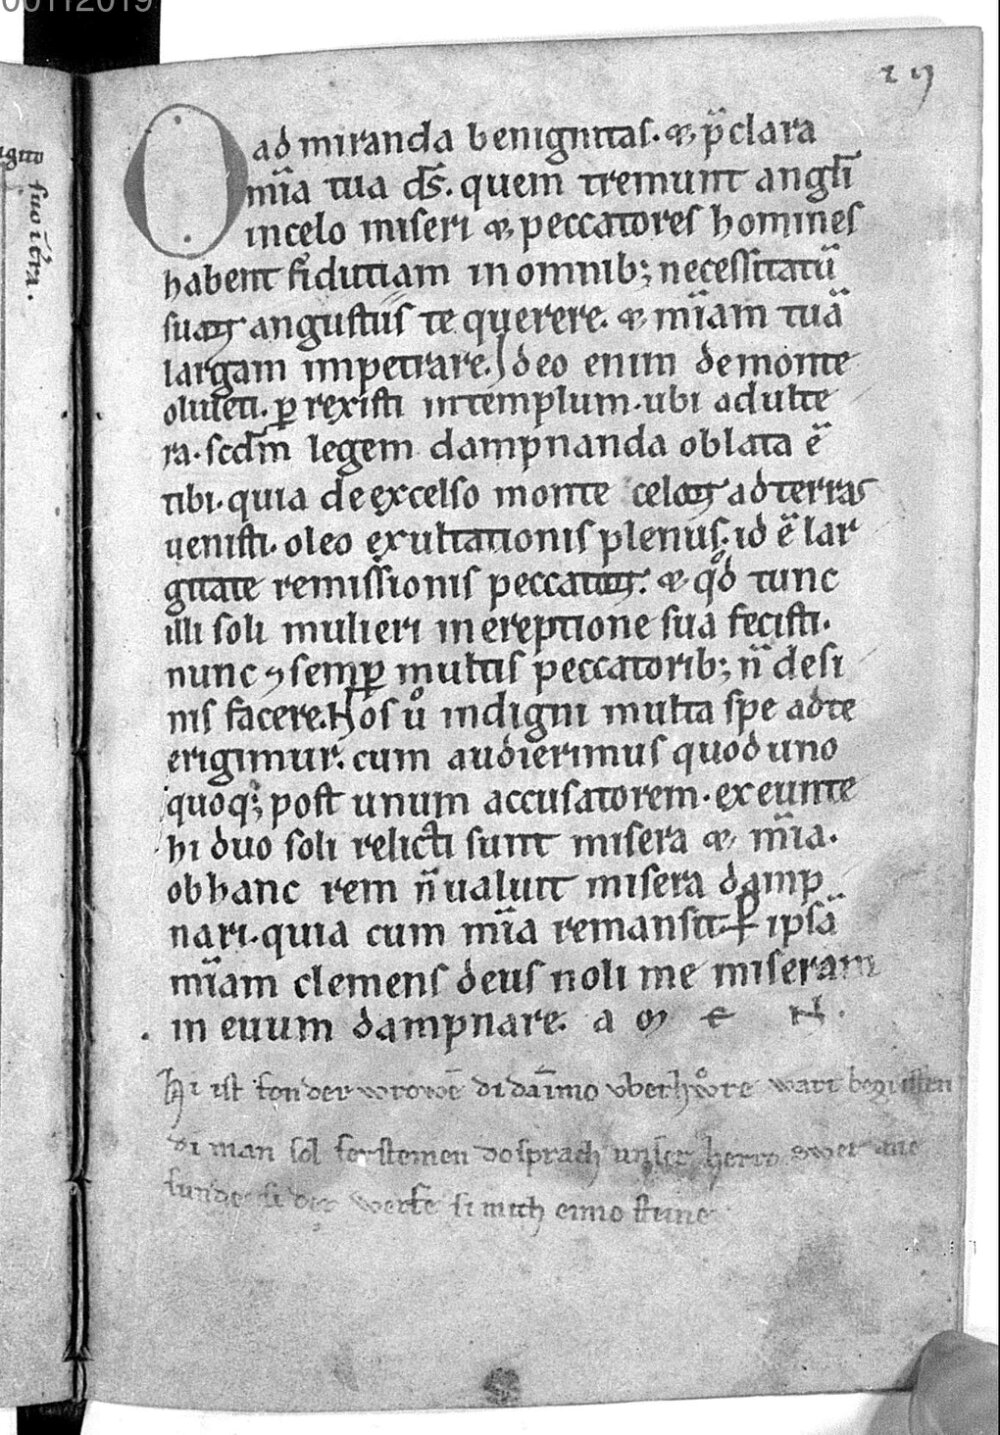 00112019
19
O admiranda benignitas. & p̄clara
mīa tua d̄s. quem tremunt angl̄i
incelo miseri & peccatores homines
habent fidutiam in omnib; necessitatū
suaꝝ angustiis te querere. & mīam tuā
largam impetrare. Ideo enim de monte
oliueti. ꝑrexisti in templum. ubi adulte
ra. scd̄m legem dampnanda oblata ē
tibi. quia de excelso monte celoꝝ ad terras
uenisti. oleo exultationis plenus. id ē lar
gitate remissionis peccatoꝝ. & qͦd tunc
illi soli mulieri in ereptione sua fecisti.
nunc ⁊ semꝑ multis peccatorib; n̄ desi
nis facere. Hos uͦ indigni multa spe ad te
erigimur. cum audierimus quod uno
quoq; post unum accusatorem. exeunte
hi duo soli relicti sunt misera & mīa.
ob hanc rem n̄ ualuit misera damp
nari. quia cum mīa remansit. ꝑ ipsā
mīam clemens deus noli me miseram
in euum dampnare. a m e N.
Hi ist fon der wrowē di da īmo vber hͦvre wart begriffen
di man sol ferstemen do sprach unser herro swer ane
sunde si der werfe si mith eimo steine
gito
suo ībra.